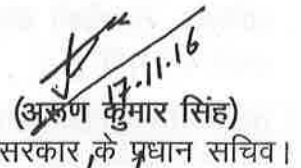 17.11.16
(अरूण कुमार सिंह)
सरकार के प्रधान सचिव।